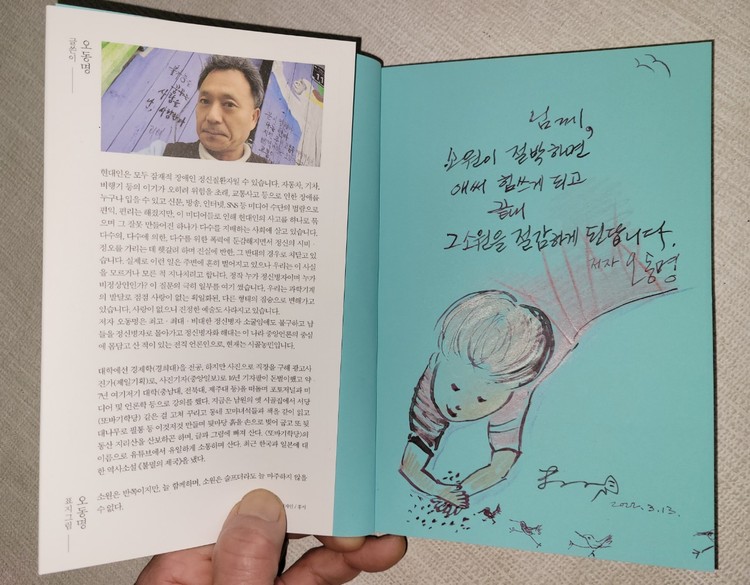 글쓴이
오동명
현대인은 모두 잠재적 장애인 정신질환자일 수 있습니다. 자동차, 기차,
비행기 등의 이기가 오히려 위험을 초래, 교통사고 등으로 인한 장애를
누구나 입을 수 있고 신문, 방송, 인터넷, SNS 등 미디어 수단의 범람으로
편익, 편리는 해졌지만, 이 미디어들로 인해 현대인의 사고를 하나로 묶
으며 그 잘못 만들어진 하나가 다수를 지배하는 사회에 살고 있습니다.
다수의, 다수에 의한, 다수를 위한 폭력에 둔감해지면서 정신의 시비·
정오를 가리는 데 헷갈려 하며 진실에 반한, 그 반대의 경우로 치닫고 있
습니다. 실제로 이런 일은 주변에 흔히 벌어지고 있으나 우리는 이 사실
을 모르거나 모른 척 지나치려고 합니다. 정작 누가 정신병자이며 누가
비정상인인가? 이 질문의 극히 일부를 여기 썼습니다. 우리는 과학기계
의 발달로 점점 사랑이 없는 획일화된, 다른 형태의 짐승으로 변해가고
있습니다. 사랑이 없으니 진정한 예술도 사라지고 있습니다.
저자 오동명은 최고·최대·비대한 정신병자 소굴임에도 불구하고 남
들을 정신병자로 몰아가고 정신병자화 해대는 이 나라 중앙언론의 중심
에 몸담고 산 적이 있는 전직 언론인으로, 현재는 시골농인입니다.
대학에선 경제학(경희대)을 전공, 하지만 사진으로 직장을 구해 광고사
진가(제일기획)로, 사진기자(중앙일보)로 16년 기자밥이 돈벌이했고 약
7년 여기저기 대학(충남대, 전북대, 제주대 등)을 떠돌며 포토저널과 미
디어 및 언론학 등으로 강의를 했다. 지금은 남원의 옛 시골집에서 서당
(또바기학당) 같은 걸 고쳐 꾸리고 동네 꼬마녀석들과 책을 같이 읽고
대나무로 필통 등 이것저것 만들며 뒷마당 흙을 손으로 빚어 굽고 또 뒷
동산 지리산을 산보하곤 하며, 글과 그림에 빠져 산다. 《또바기학당》의
이름으로 유튜브에서 유일하게 소통하며 산다. 최근 한국과 일본에 대
한 역사소설 《불멸의 제국》을 냈다.
표지그림
오동명
소원은 반쪽이지만, 늘 함께하며, 소원은 슬프더라도 늘 마주하지 않을
수 없다.
님께,
소원이 절박하면
애써 힘쓰게 되고
끝내
그 소원을 절감하게 된답니다.
저자 오동명
2022. 3. 13.